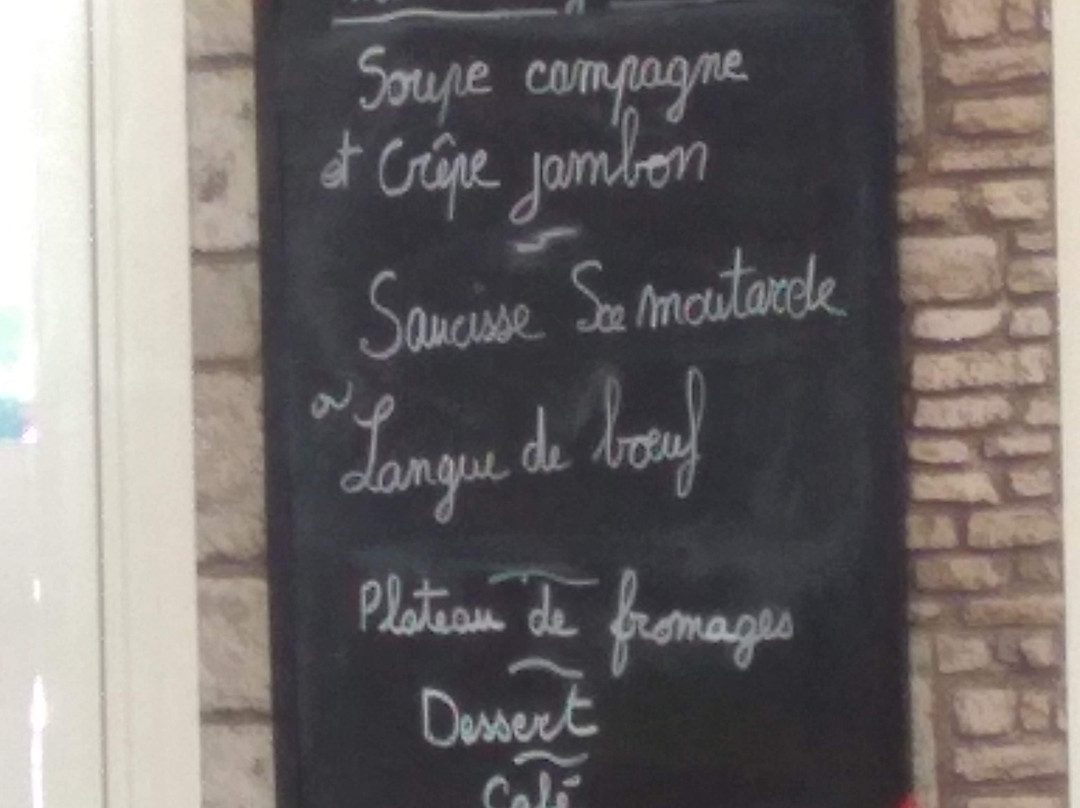 Soupe campagne
et Crêpe jambon
Saucisse Sce moutarde
ou
Langue de bœuf
Plateau de fromages
Dessert
Café